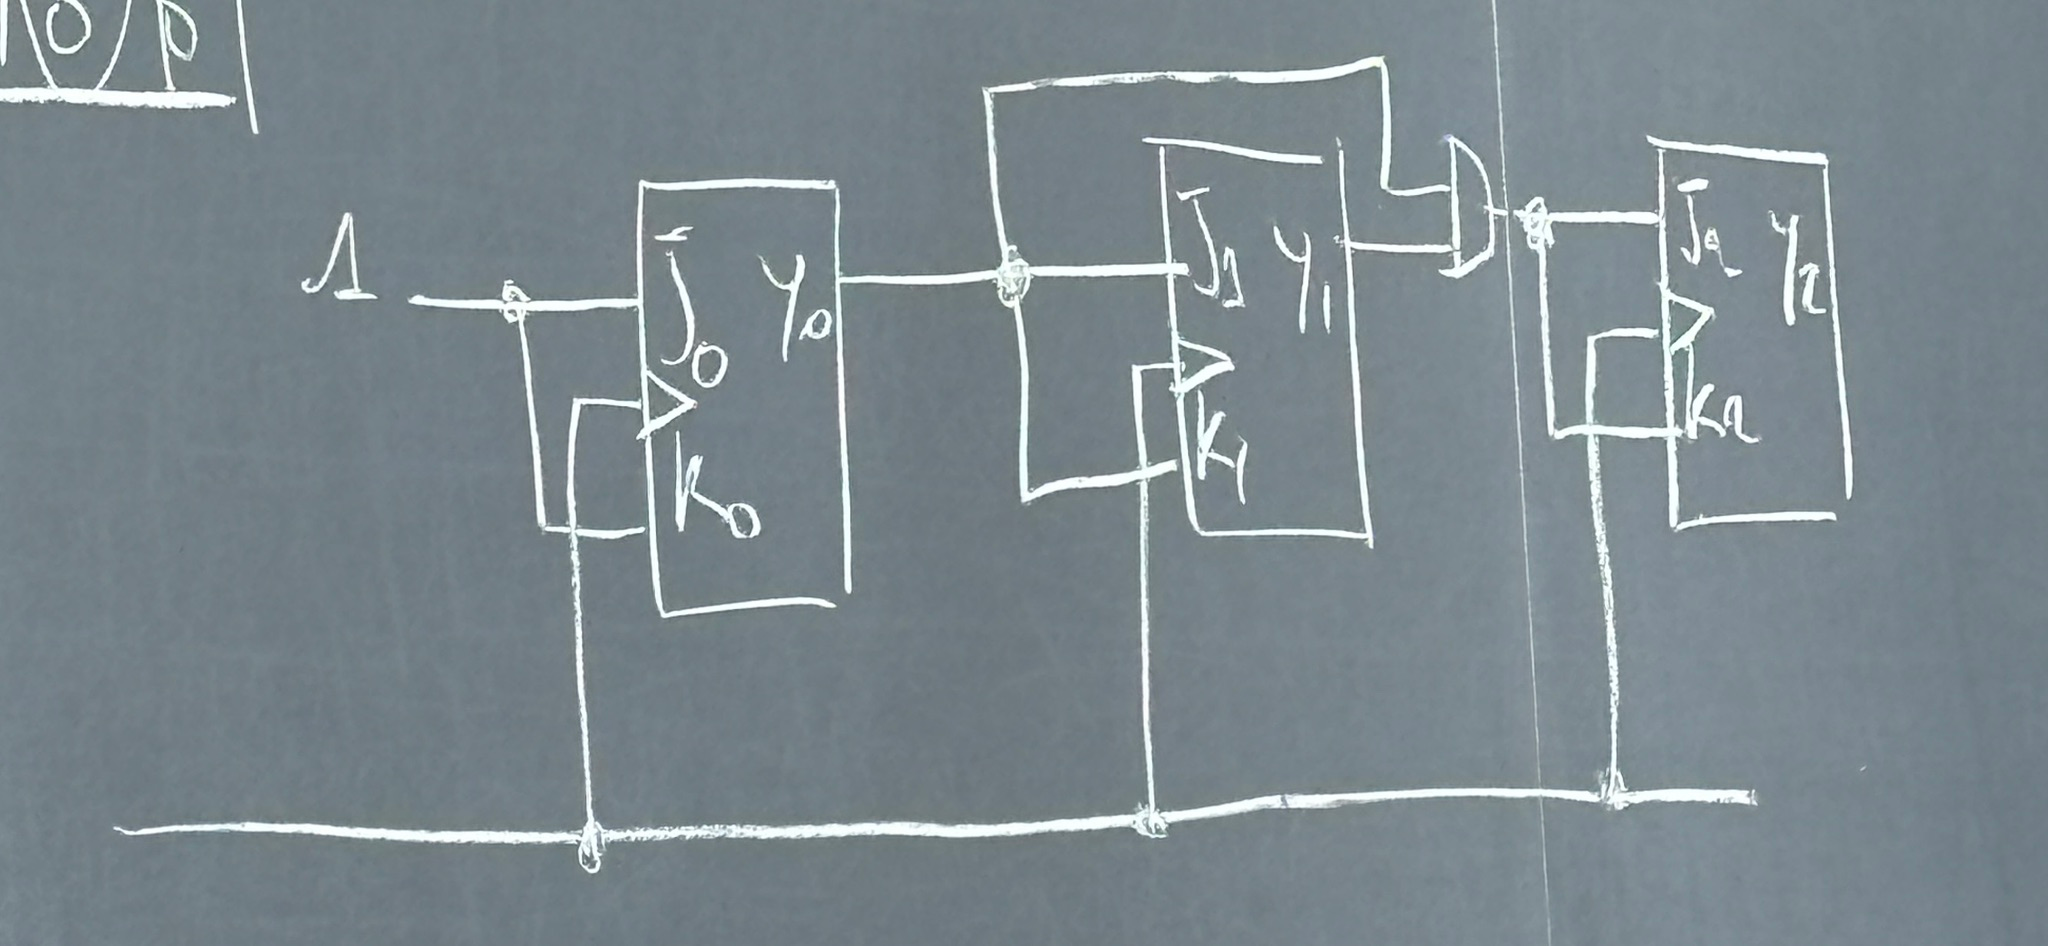 0 P
1
J0 y0
K0
J1 y1
K1
J2 y2
K2